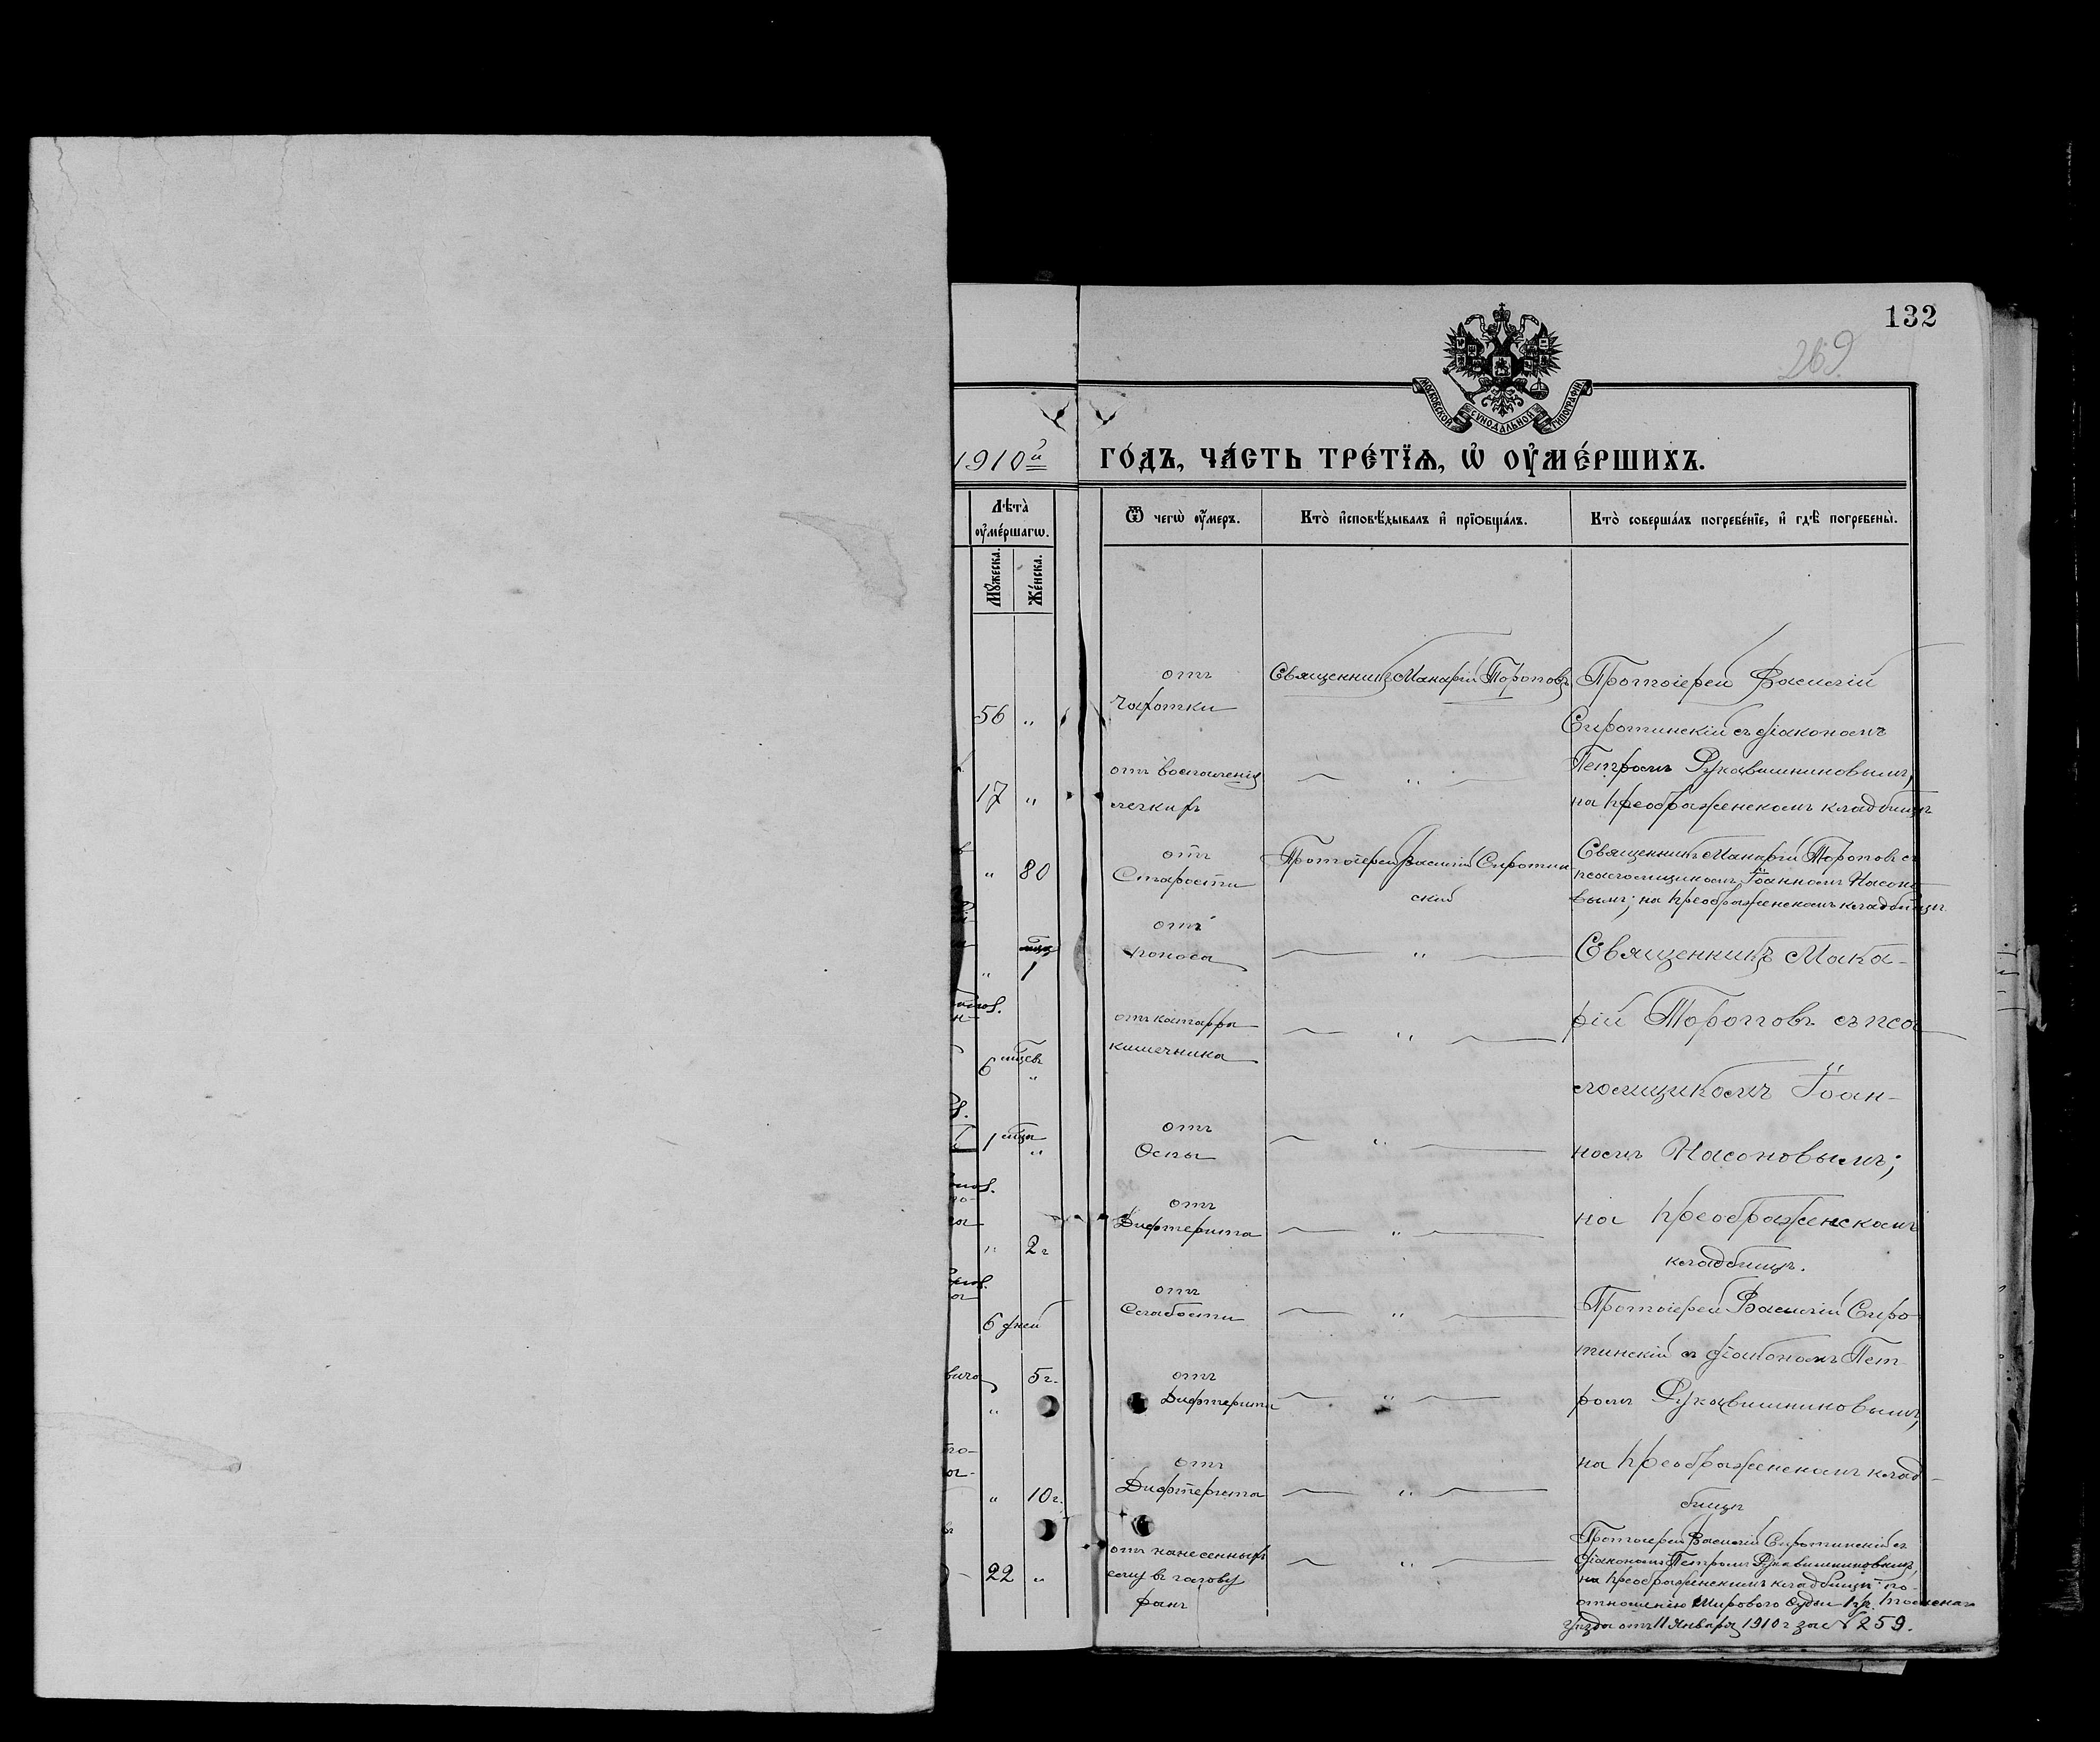 132
269
МОСКОВСКОЙ СѴНОДАЛЬНОЙ ТИПОГРАФІИ
1910й
ГО́ДЪ, ЧА́СТЬ ТРЕ́ТЇѦ, Ѡ҆ ОУ҆МЕ́РШИХЪ.
Лѣта̀ оу҆ме́ршагѡ.
Мꙋ́жеска. Же́нска.
Ѿ чегѡ̀ оу҆́меръ.
Кто̀ и҆сповѣ́дывалъ и҆ прїѡбща́лъ.
Кто̀ соверша́лъ погребе́нїе, и҆ гдѣ̀ погребены̀.
56 "
отъ
чахотки
Священникъ Макарій Тороповъ
Протоіерей Василій
Сиротинскій съ діакономъ
Петромъ Рукавишниковымъ,
на Преображенскомъ кладбищѣ
17 "
отъ воспаленія
легкихъ
— " —
" 80
отъ
Старости
Протоіерей Василій Сиротин
скій
Священникъ Макарій Торопов съ
псаломщикомъ Іоанномъ Насоно
вымъ; на Преображенскомъ кладбищѣ
мца
" 1
отъ
поноса
— " —
Священникъ Мака-
рій Торопов съ пса
ломщикомъ Іоан-
номъ Насоновымъ;
на Преображенскомъ
кладбищѣ.
6 мцевъ "
отъ катарра
кишечника
— " —
1 мца "
отъ
Оспы
— " —
" 2 г
отъ
Дифтерита
— " —
6 дней
отъ
Слабости
— " —
Протоіерей Василій Сиро
тинскій съ діакономъ Пет
ромъ Рукавишниковымъ,
на Преображенскомъ клад-
бищѣ
" 5 г.
отъ
Дифтерита
— " —
" 10 г.
отъ
Дифтерита
— " —
22 "
отъ нанесенныхъ
ему въ голову
ранъ
— " —
Протоіерей Василій Сиротинскій съ
діакономъ Петромъ Рукавишниковымъ,
на Преображенскомъ кладбищѣ по
отношенію Мирового Судьи 1 уч. Томскаго
уѣзда отъ 11 Января 1910 г за № 259.